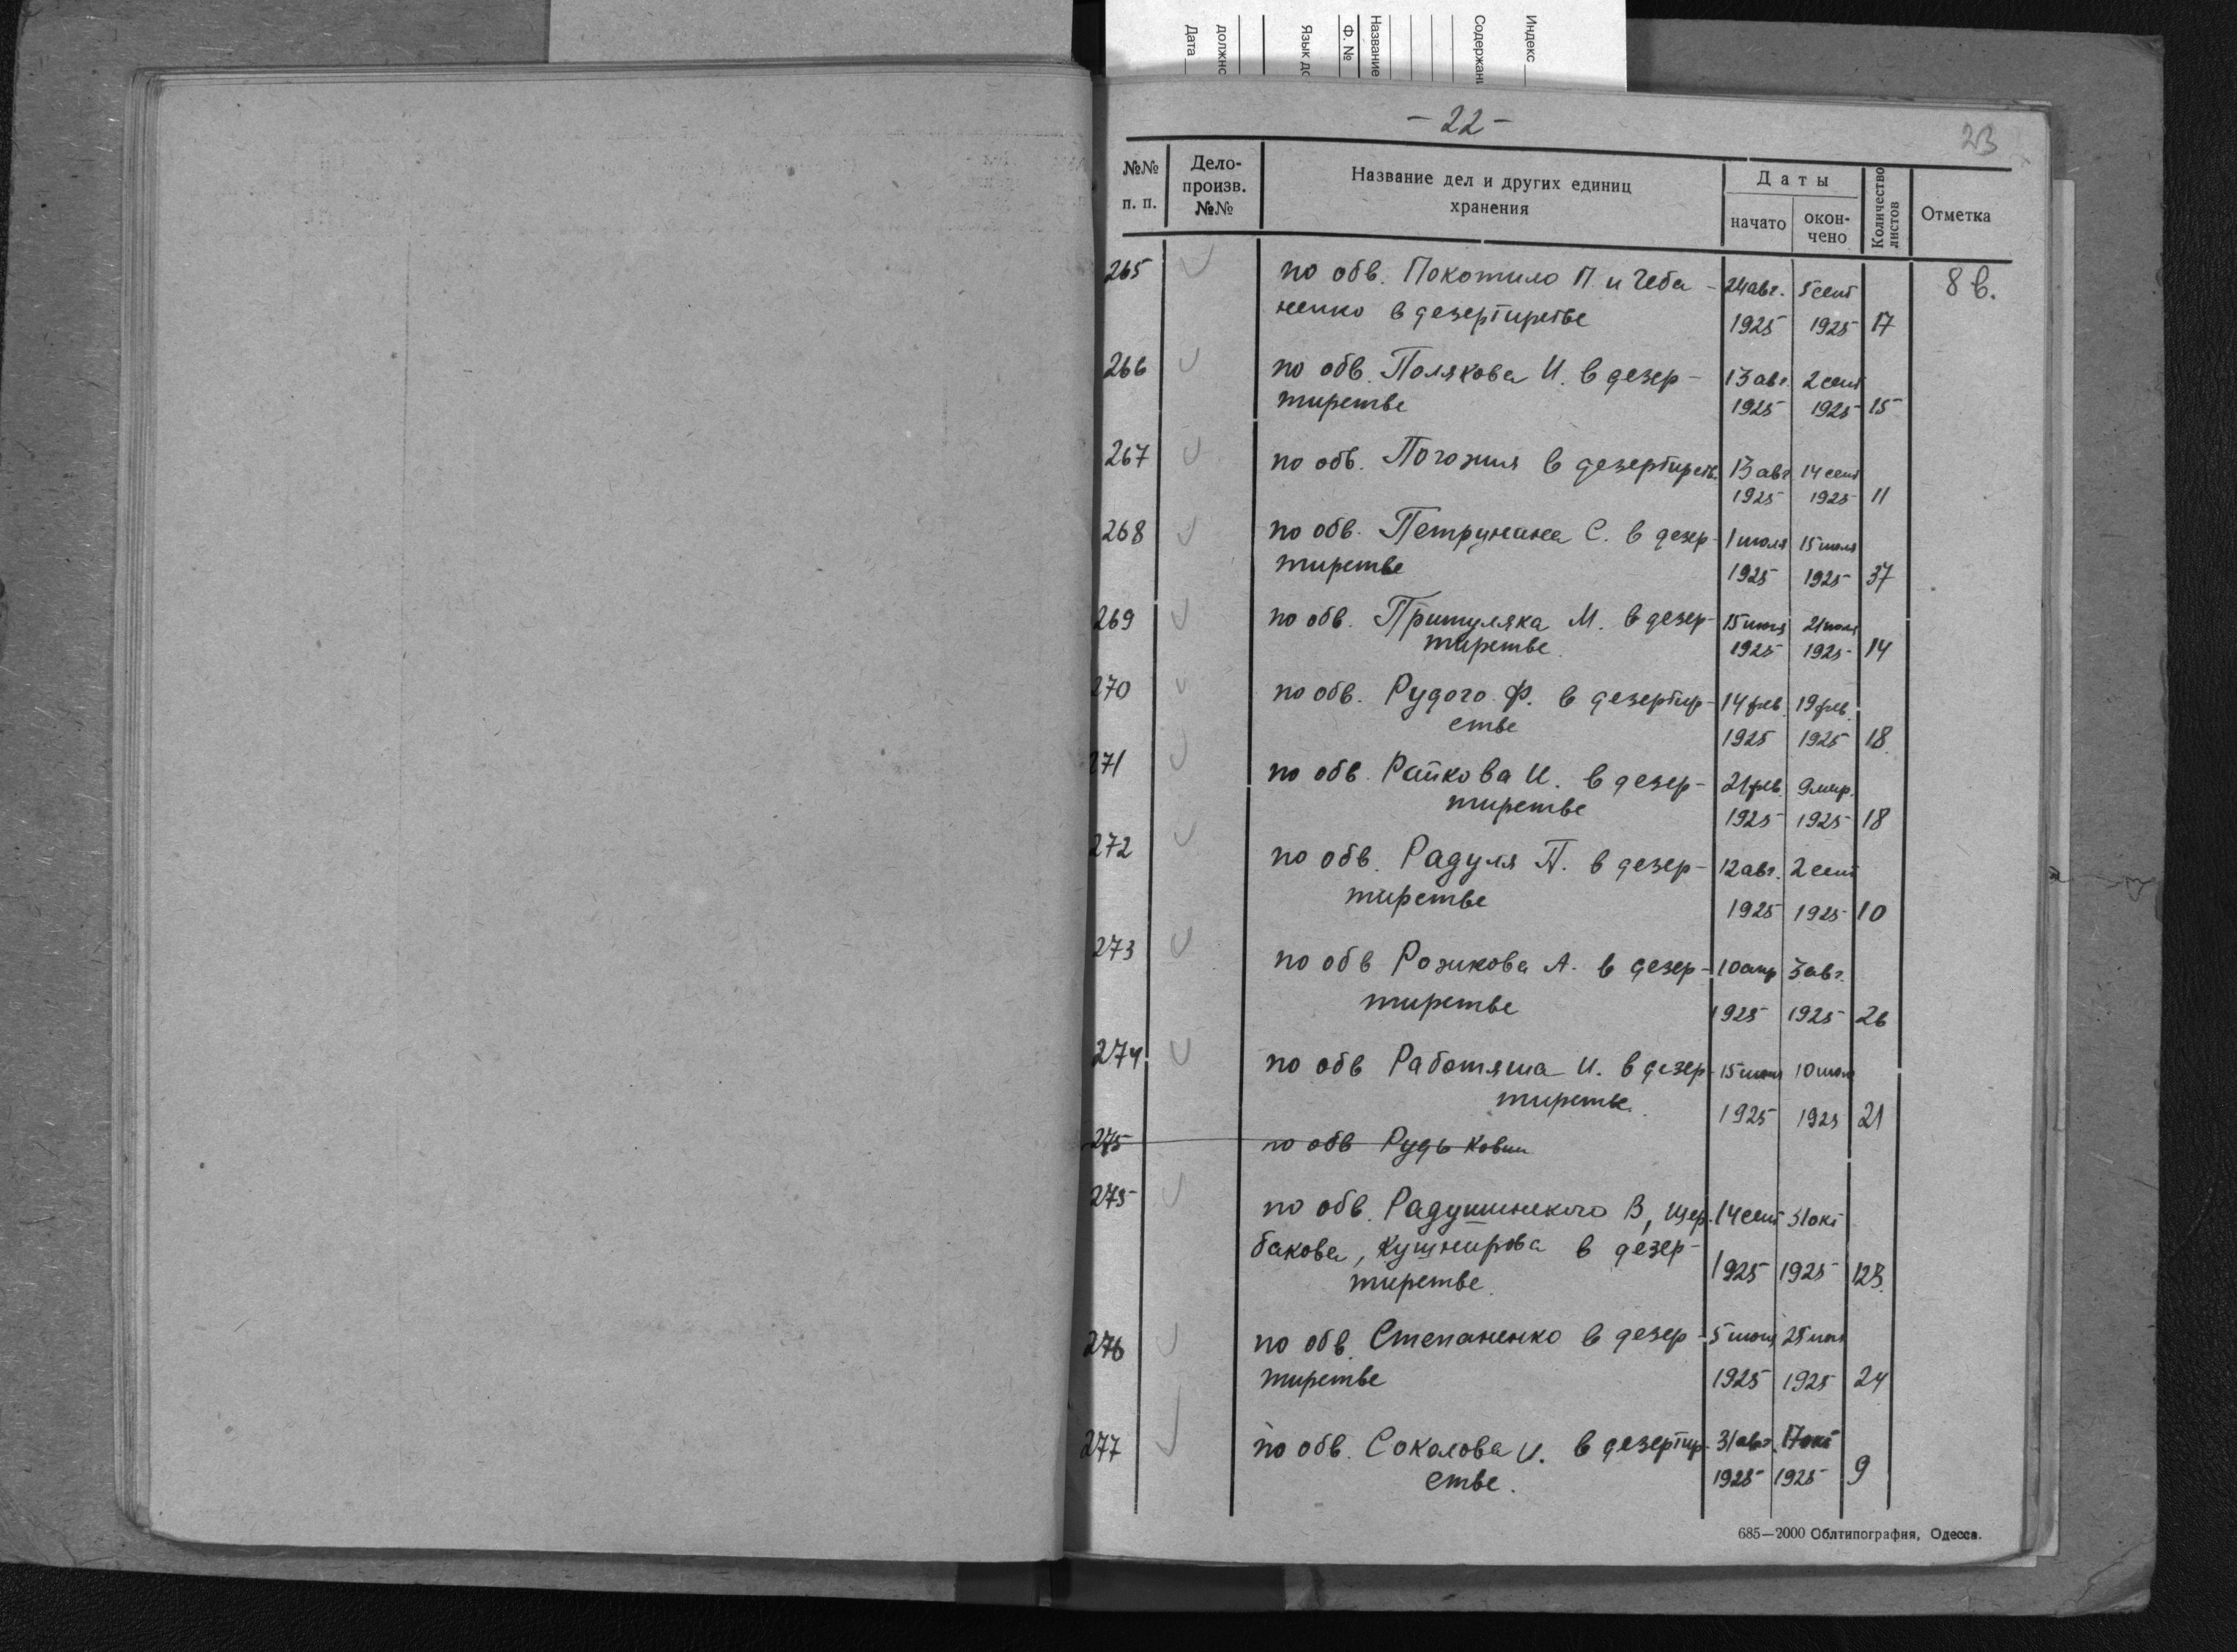 Индекс
Содержан
Название
Ф. №
Язык до
должно
Дата
- 22 -
23
№№ п. п.
Дело-произв. №№
Название дел и других единиц хранения
Даты
начато
окон-чено
Количество листов
Отметка
265 по обв. Покотило П. и Чеба- 24 авг. 5 сент 8 в.
ненко в дезертирстве 1925 1925 17
266 по обв. Полякова И. в дезер- 13 авг. 2 сент
тирстве 1925 1925 15
267 по обв. Погожия в дезертирств. 13 авг 14 сент
1925 1925 11
268 по обв. Петрунина С. в дезер- 1 июля 15 июля
тирстве 1925 1925 37
269 по обв. Притуляка М. в дезер- 15 21 июля
тирстве. 1925 1925 14
270 по обв. Рудого Ф. в дезертир- 14 фев. 19 фев.
стве 1925 1925 18
271 по обв. Райкова И. в дезер- 21 фев. 9 мар.
тирстве 1925 1925 18
272 по обв. Радуля П. в дезер- 12 авг. 2 сент
тирстве 1925 1925 10
273 по обв Рожкова А. в дезер- 10 апр 3 авг.
тирстве 1925 1925 26
274 по обв Работяша И. в дезер- 15 10 июля
тирстве. 1925 1925 21
275 по обв Рудь
275 по обв. Радушинского В, Щер- 14 сент 31 окт
бакова, Кушнирова в дезер-
тирстве. 1925 1925 123
276 по обв. Степаненко в дезер- 5 25
тирстве 1925 1925 24
277 по обв. Соколова И. в дезертир- 31 авг. 17 окт
стве. 1925 1925 9
685—2000 Облтипография, Одесса.